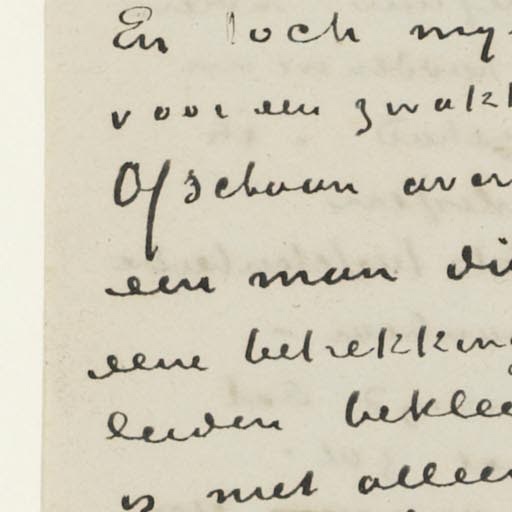 En toch my
voor een zwakk
Ofschoon over
een man di
eene betrekking
leiden beklee
is met alleen